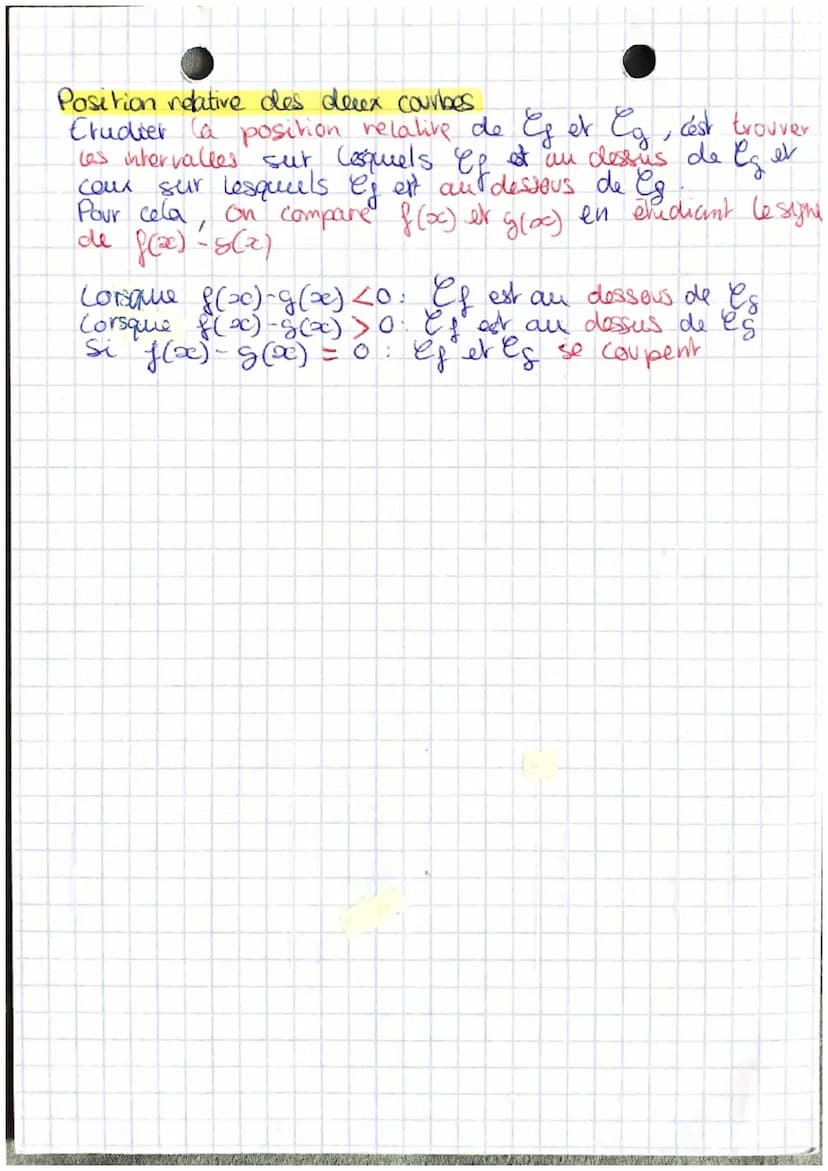 Position relative des deux courbes
Etudier la position relative de Cf et Cg, c'est trouver
les intervalles sur lesquels Cf est au dessus de Cg et
ceux sur lesquels Cf est au dessous de Cg.
Pour cela, on compare f(x) et g(x) en étudiant le signe
de f(x) - g(x)
Lorsque f(x)-g(x) < 0 : Cf est au dessous de Cg
Lorsque f(x)-g(x) > 0 : Cf est au dessus de Cg
Si f(x)-g(x) = 0 : Cf et Cg se coupent